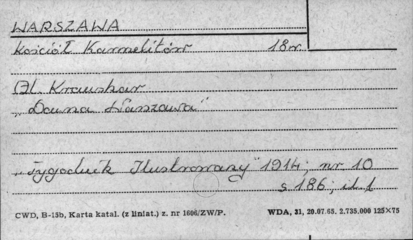 WARSZAWA
Kościół Karmelitów 18w.
Al. Kraushar
"Dawna Warszawa"
"Tygodnik Ilustrowany" 1914; nr. 10
s. 186; il. 1
CWD, B-15b, Karta katal. (z liniat.) z. nr 1606/ZW/P. WDA, 31, 20.07.65. 2.735.000 125×75